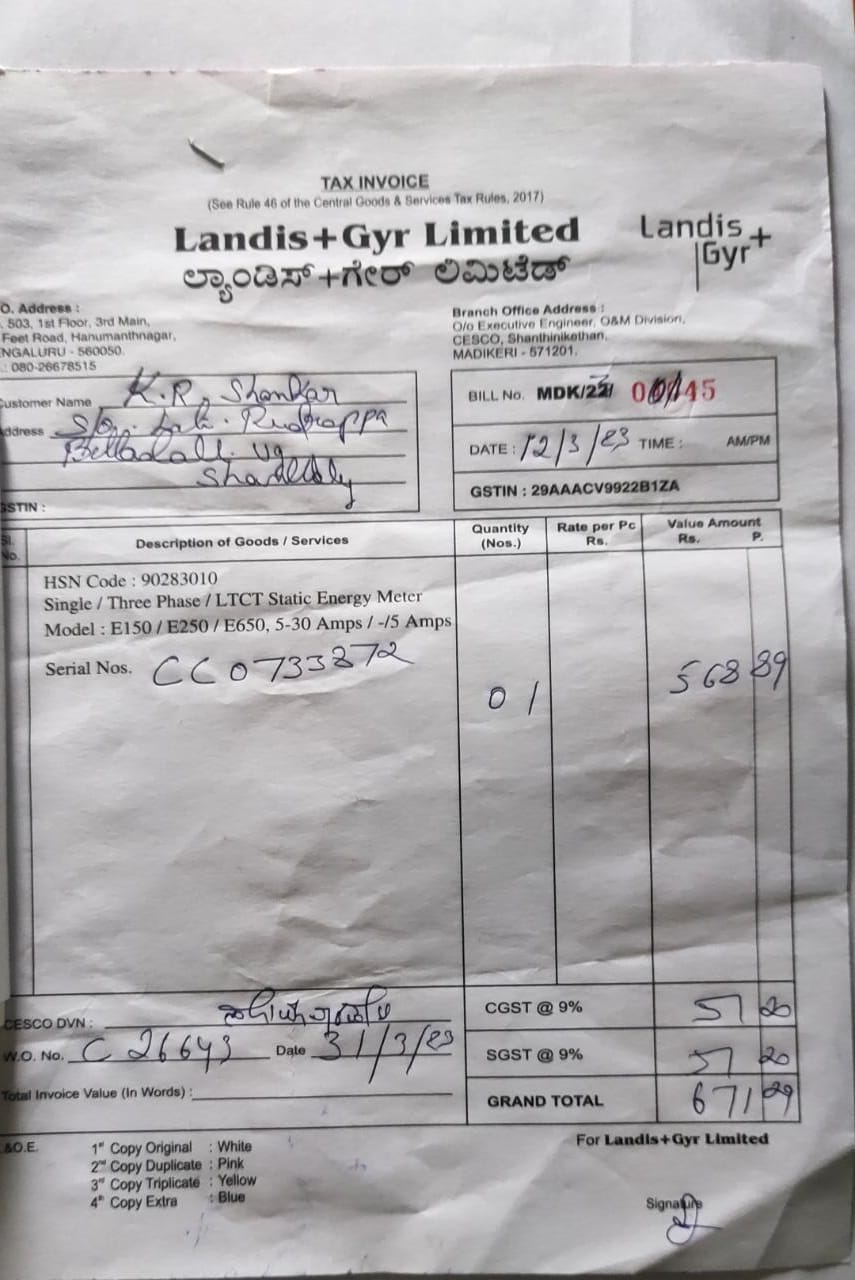 TAX INVOICE
(See Rule 46 of the Central Goods & Services Tax Rules, 2017)
Landis+Gyr Limited
Landis
Gyr+
ಲ್ಯಾಂಡಿಸ್+ಗೇರ್ ಲಿಮಿಟೆಡ್
O. Address :
503, 1st Floor, 3rd Main,
Feet Road, Hanumanthnagar,
NGALURU - 560050.
: 080-26678515
Branch Office Address :
O/o Executive Engineer, O&M Division,
CESCO, Shanthinikethan,
MADIKERI - 571201.
ustomer Name K.R. Shankar
ddress
BILL No. MDK/22/
DATE : 12/3/23 TIME : AM/PM
GSTIN : 29AAACV9922B1ZA
GSTIN :
Sl. No.
Description of Goods / Services
Quantity (Nos.)
Rate per Pc Rs.
Value Amount Rs. P.
HSN Code : 90283010
Single / Three Phase / LTCT Static Energy Meter
Model : E150 / E250 / E650, 5-30 Amps / -/5 Amps
Serial Nos. CC0733872
01
568 89
CESCO DVN :
W.O. No. C 26643 Date 31/3/23
Total Invoice Value (In Words) :
CGST @ 9% 51 20
SGST @ 9% 51 20
GRAND TOTAL 671 29
&O.E.
1st Copy Original : White
2nd Copy Duplicate : Pink
3rd Copy Triplicate : Yellow
4th Copy Extra : Blue
For Landis+Gyr Limited
Signature